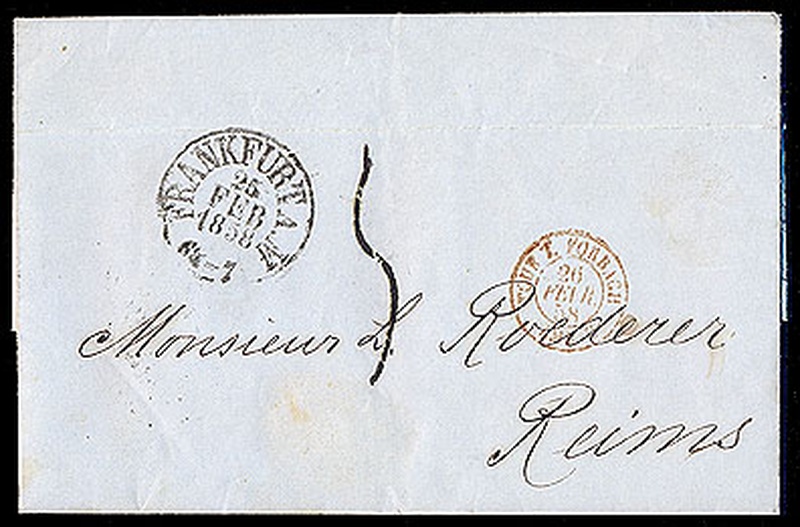 FRANKFURT A.M.
25
FEB
1858
6½-7
T. FORBACH
26
FEVR
58
Monsieur L. Roederer
Reims